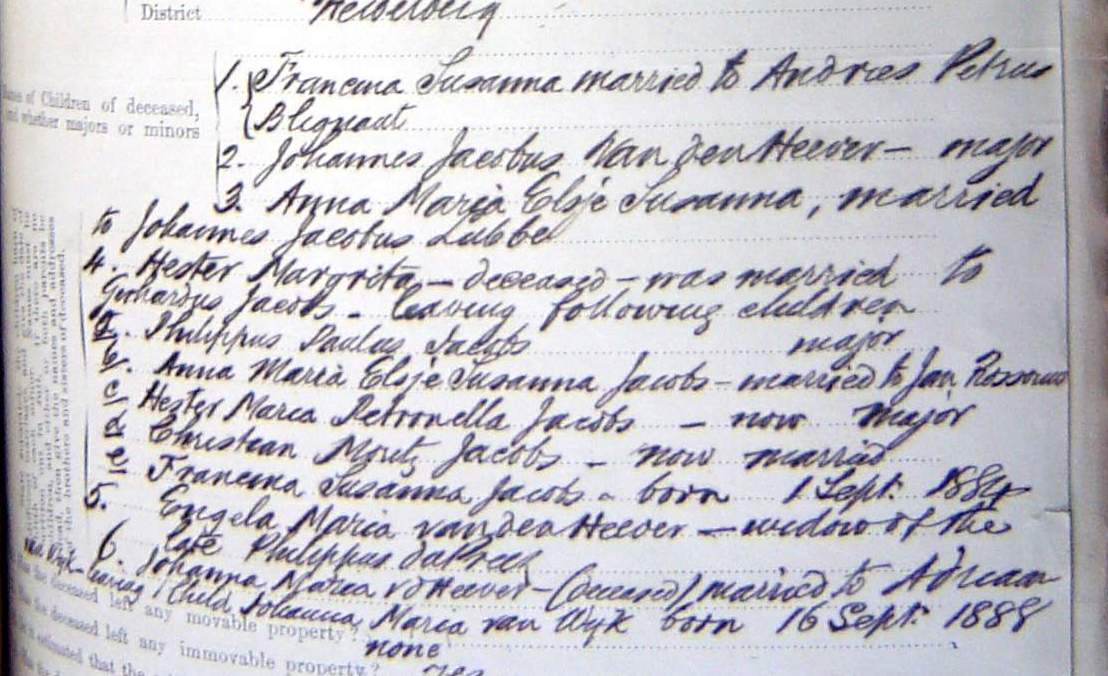 District Heidelberg
Names of Children of deceased,
and whether majors or minors
1. Francina Susanna married to Andries Petrus
Blignaut
2. Johannes Jacobus van den Heever – major
3. Anna Maria Elsje Susanna, married
to Johannes Jacobus Lubbe
4. Hester Margrita – deceased – was married to
Gerhardus Jacobs – leaving following children
a. Philippus Paulus Jacobs major
b. Anna Maria Elsje Susanna Jacobs – married to Jan Rossouw
c Hester Maria Petronella Jacobs – now major
d Christian Jacobs – now married
e Francina Susanna Jacobs – born 1 Sept. 1884
5. Engela Maria van den Heever – widow of the
late Philippus du Preez
6. Johanna Maria vd Heever – (deceased) married to Adriaan
van Wyk – leaving 1 child Johanna Maria van Wyk born 16 Sept. 1888
the deceased left any movable property?
none
the deceased left any immovable property?
yes
estimated that the
the brothers and sisters of deceased.